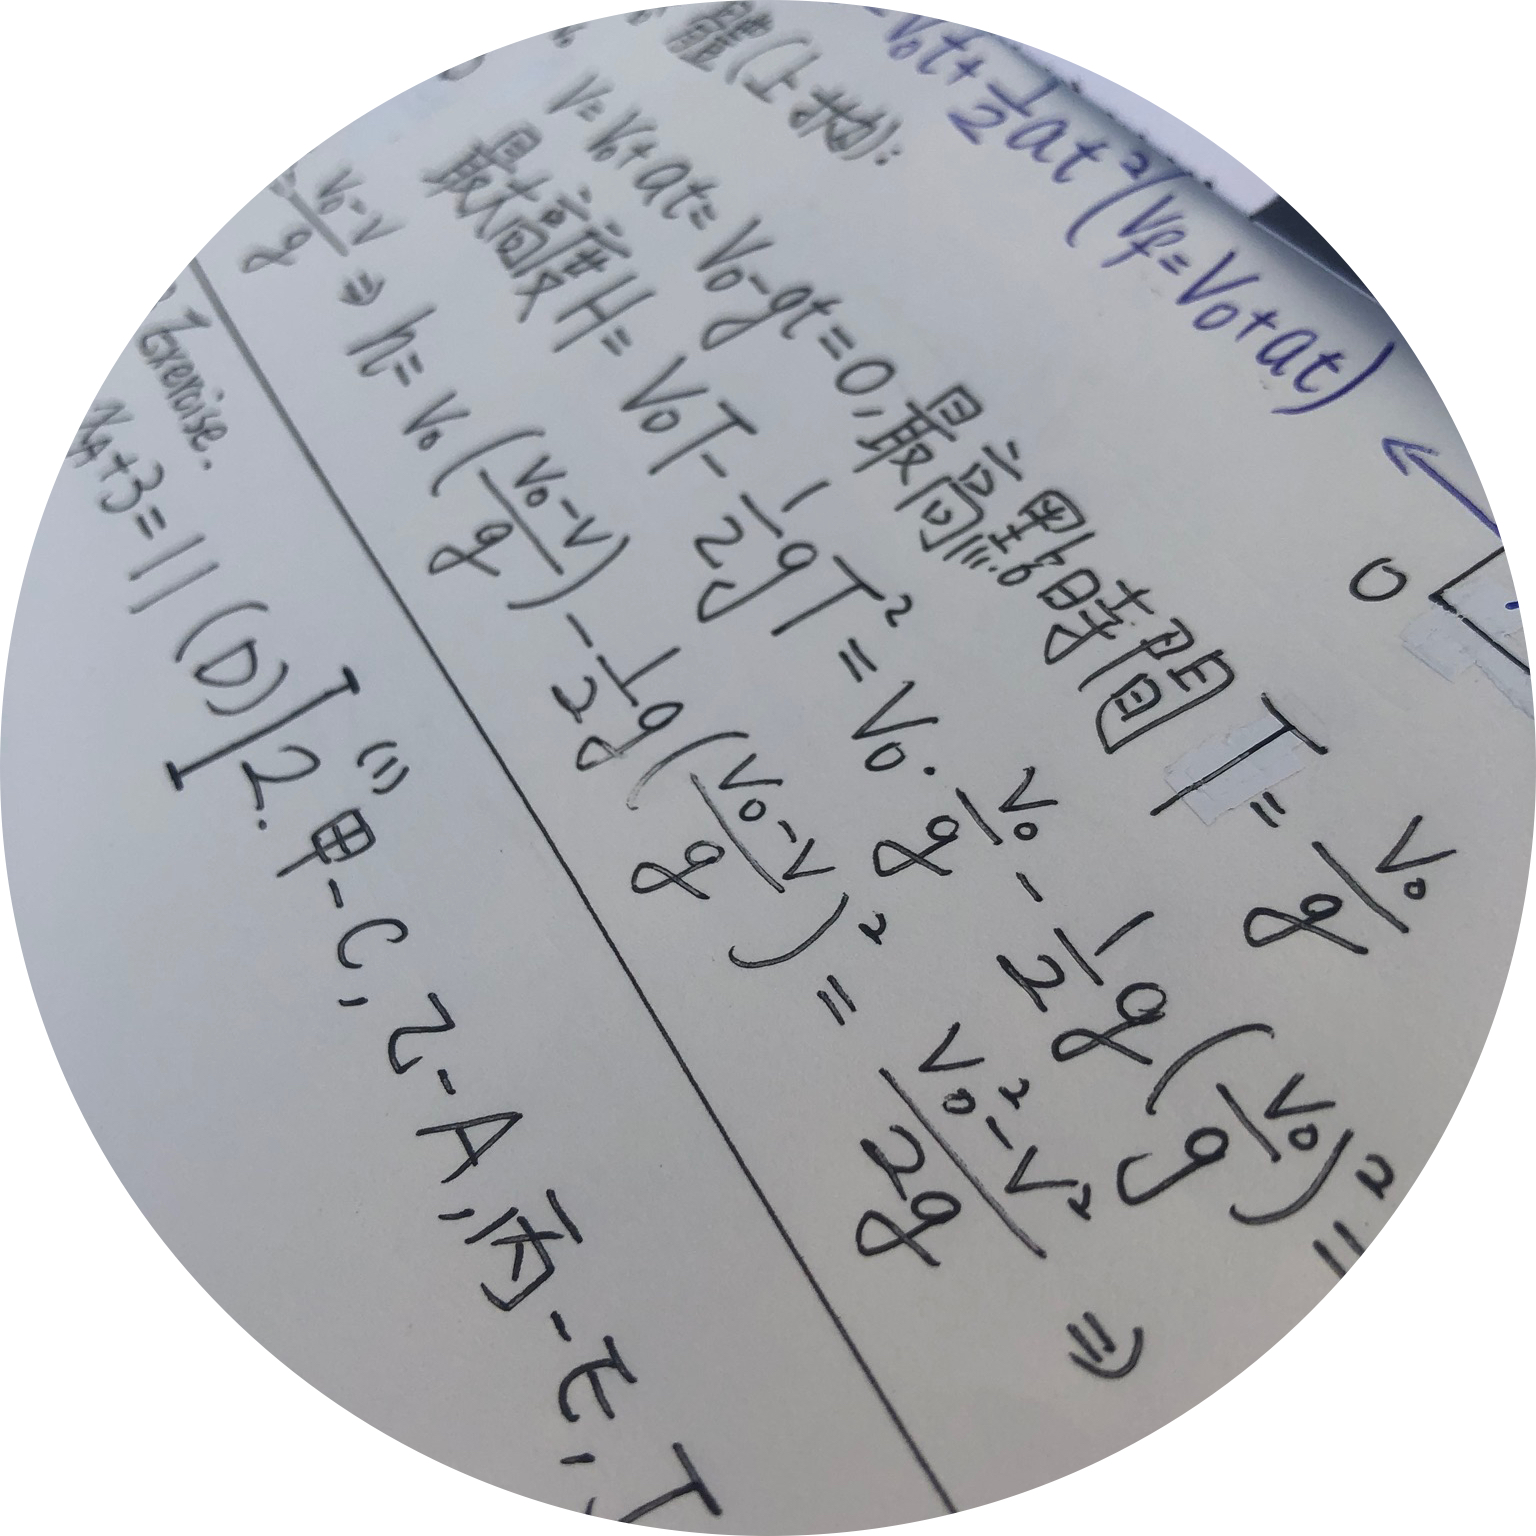 V₀t+½at² (Vf=V₀+at)
0
體(上拋):
V=V₀+at=V₀-gt=0,最高點時間T=V₀/g
最高度H=V₀T-½gT²=V₀·V₀/g-½g(V₀/g)²=
V₀-V/g ⇒ h=V₀(V₀-V/g)-½g(V₀-V/g)²=V₀²-V²/2g ⇒
Exercise.
+3=11(D)
2.甲-C,乙-A,丙-E,